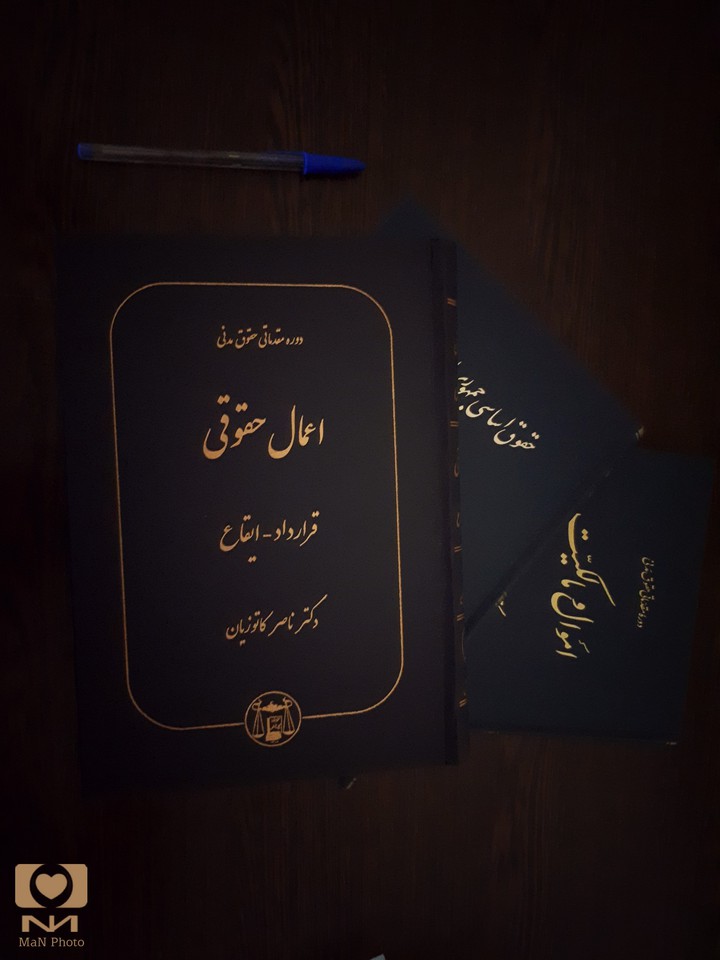 دوره مقدماتی حقوق مدنی
اعمال حقوقی
قرارداد - ایقاع
دکتر ناصر کاتوزیان
حقوق اساسی جمهوری
اموال و مالکیت
MaN Photo